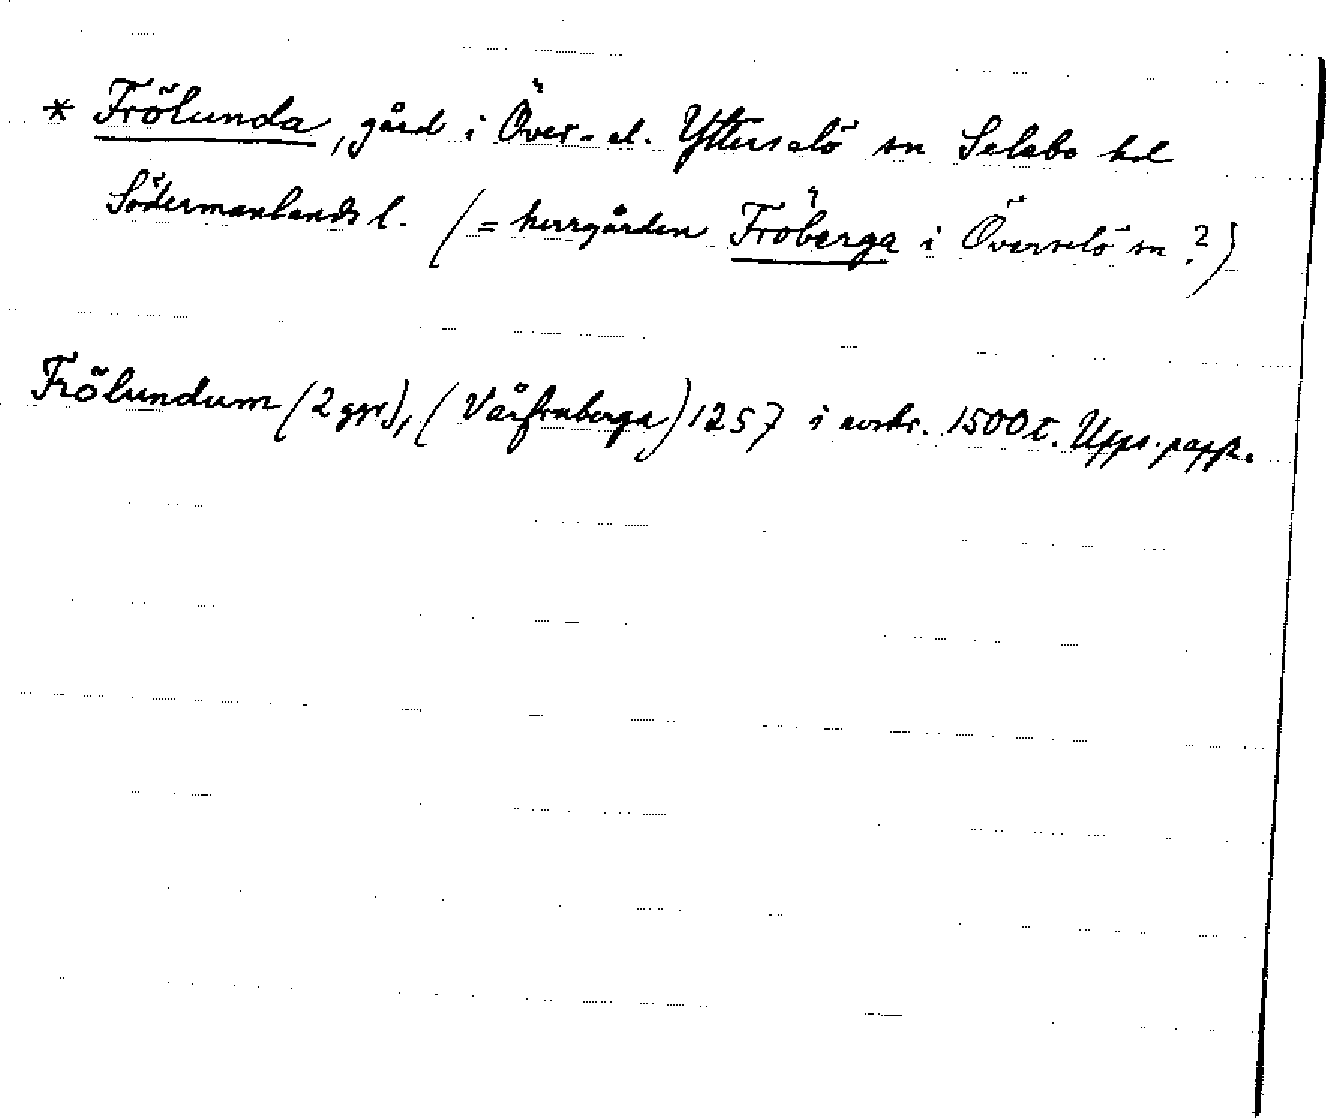 * Frölunda, gård i Över- el. Ytterselö sn Selebo hd
Södermanlands l. (= herrgården Fröberga i Överselö sn ?)
Frölundum (2 ggr), (Vårfruberga) 1257 i avskr. 1500t. Upps. papp.